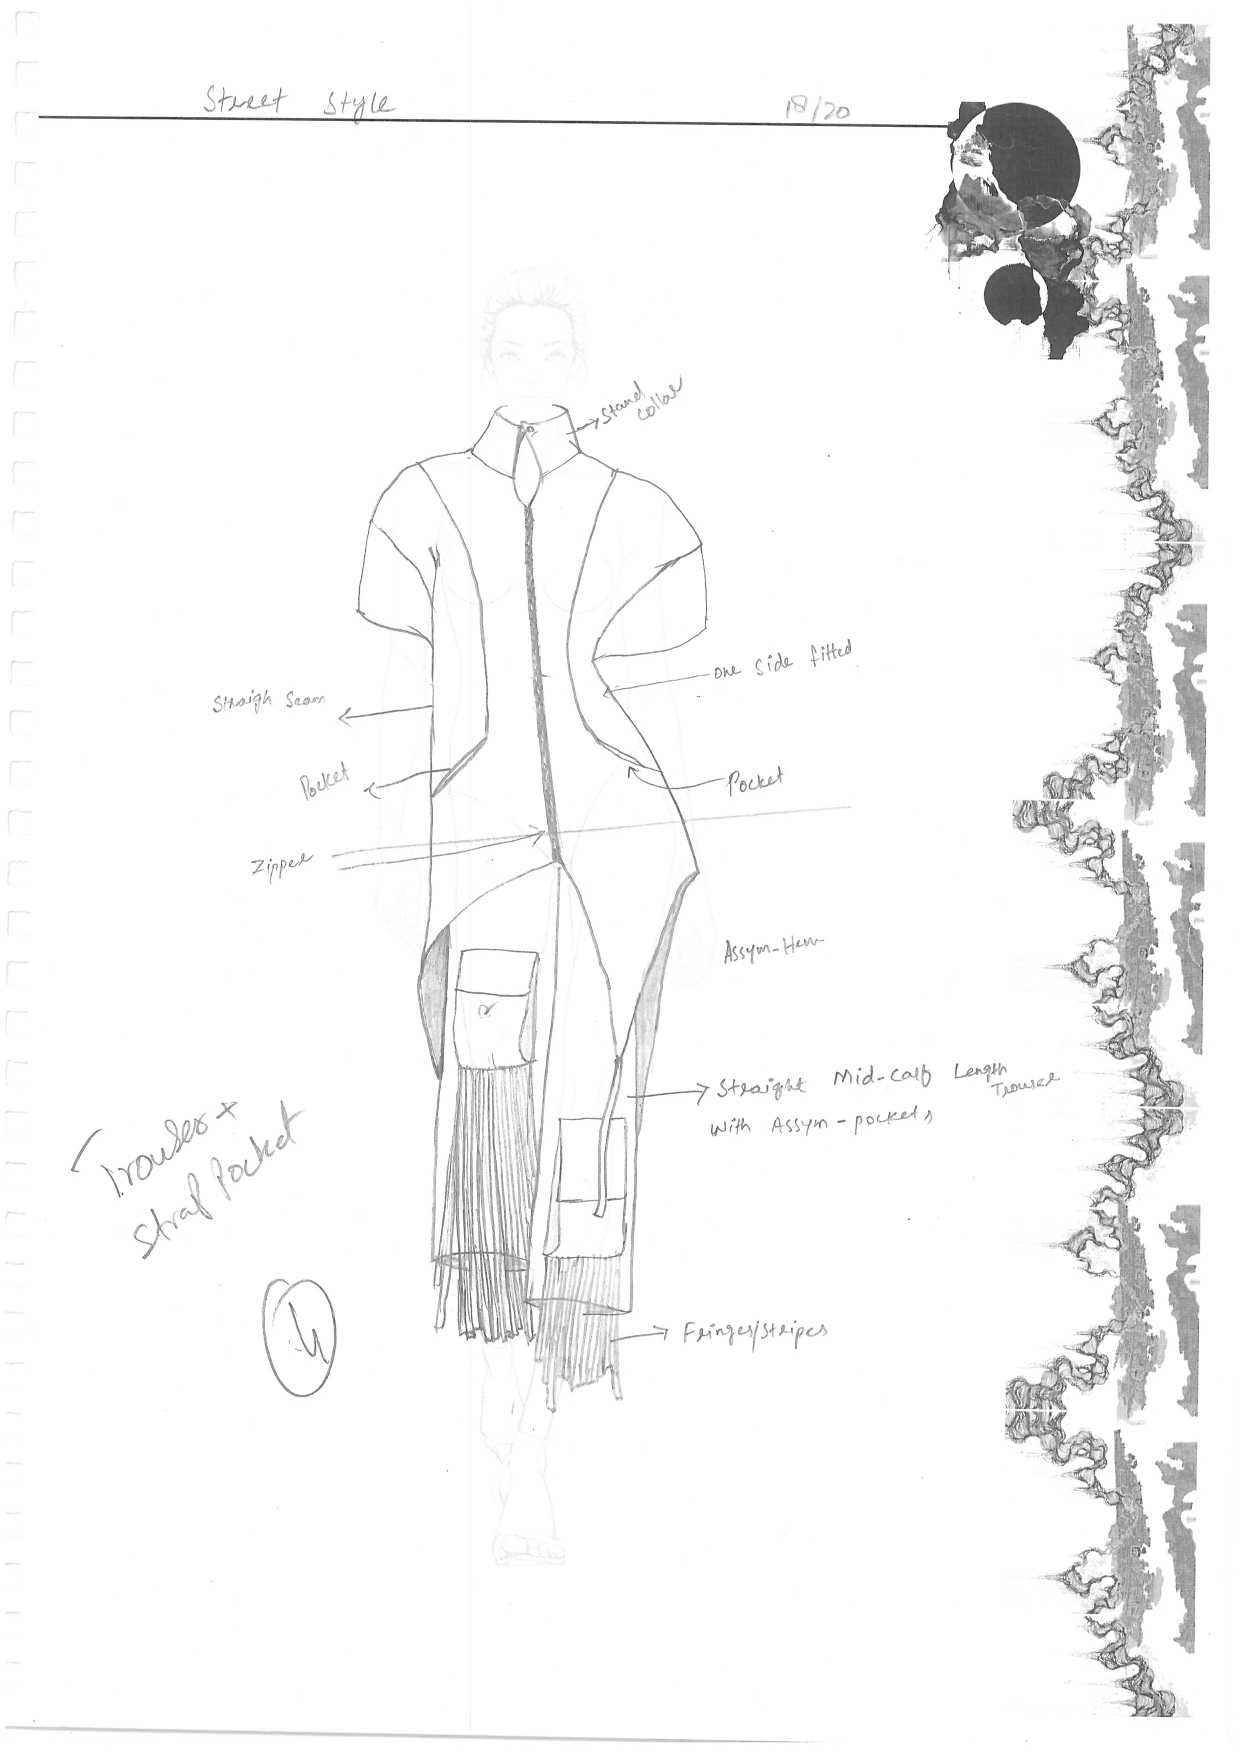 Street Style
18/20
Stand
collar
One side fitted
Straigh Seam
Pocket
Pocket
Zipper
Assym-Hem
Straight Mid-calf Length
Trouser
With Assym-pockets
Trouser +
Strap Pocket
Fringes/stripes